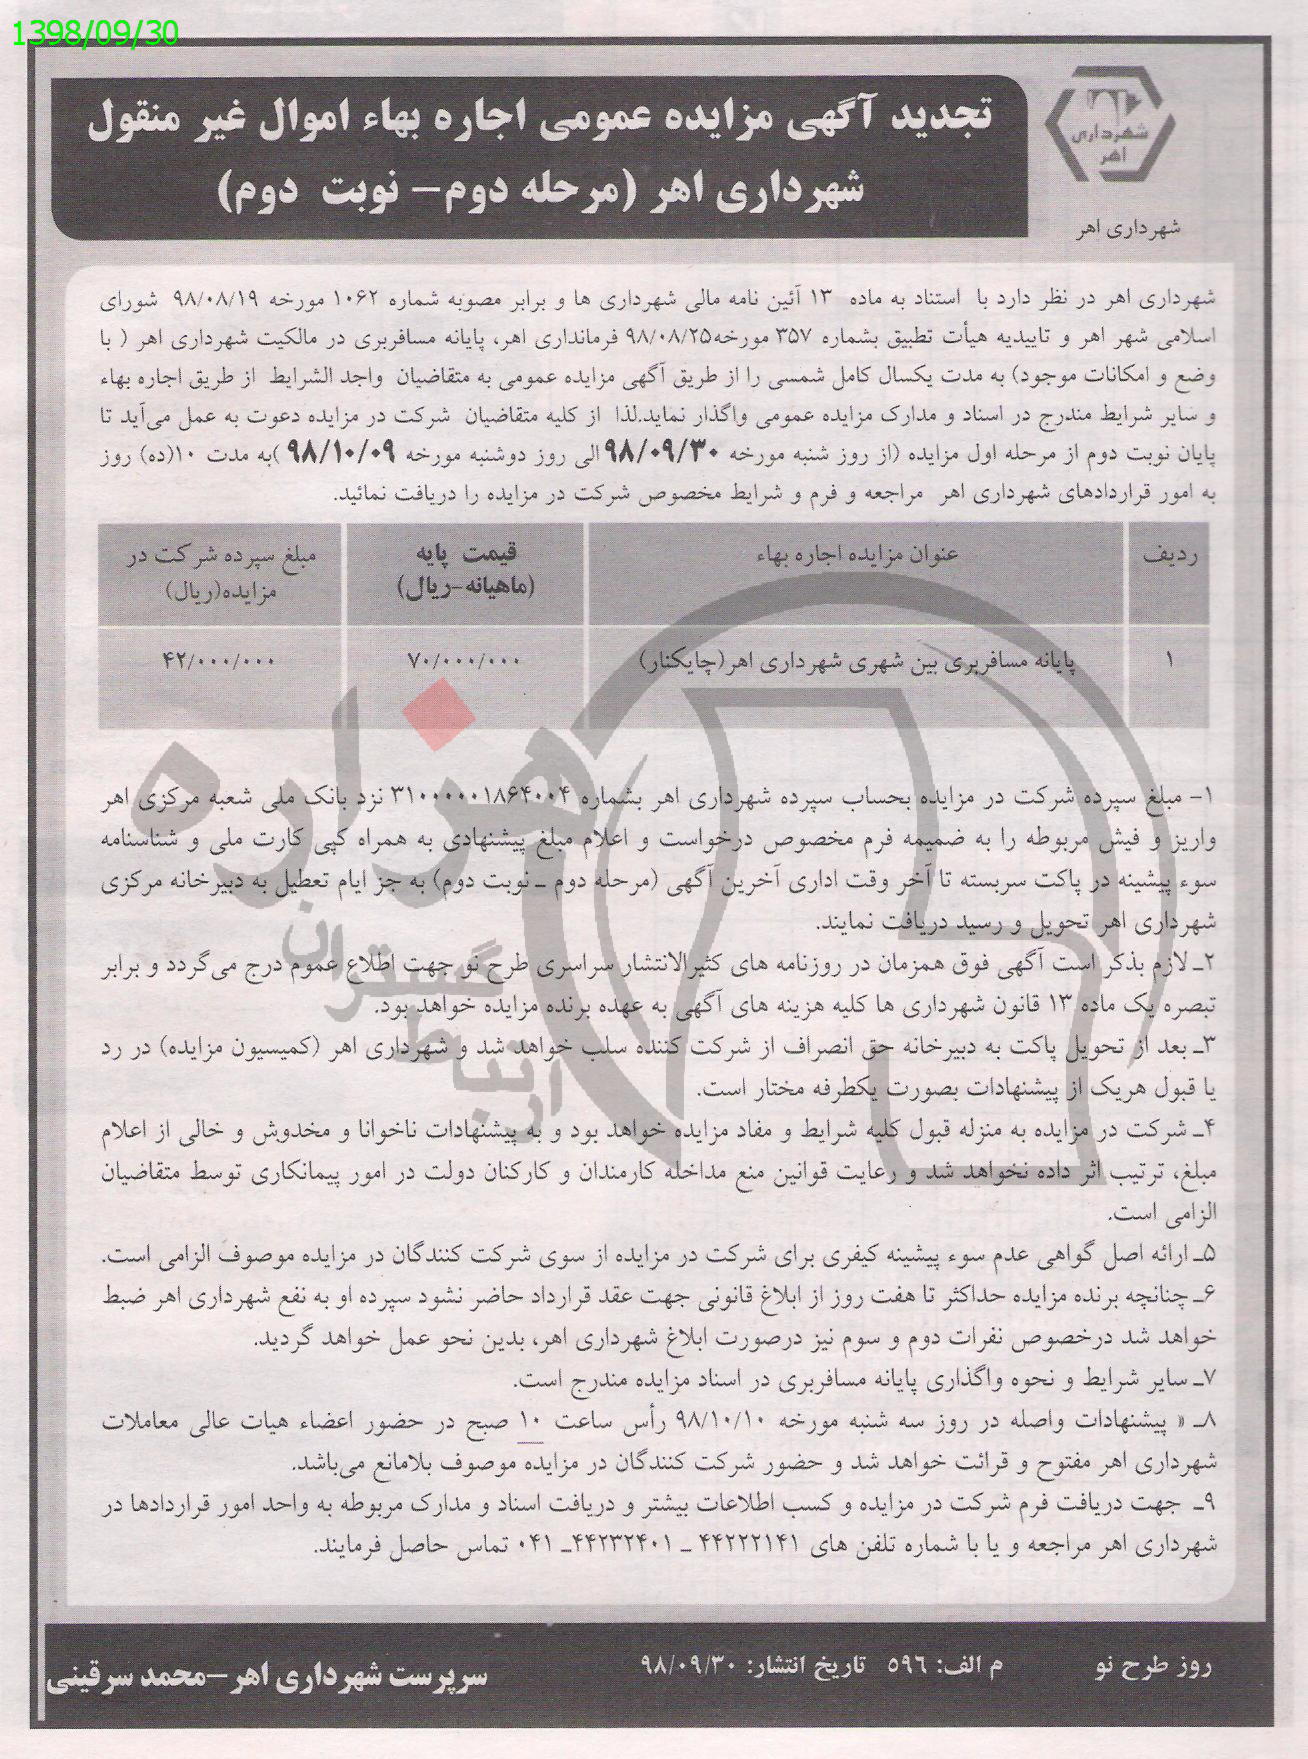 1398/09/30
تجدید آگهی مزایده عمومی اجاره بهاء اموال غیر منقول
شهرداری اهر (مرحله دوم– نوبت دوم)
شهرداری
اهر
شهرداری اهر
شهرداری اهر در نظر دارد با استناد به ماده ۱۳ آئین نامه مالی شهرداری ها و برابر مصوبه شماره ۱۰۶۲ مورخه ۹۸/۰۸/۱۹ شورای
اسلامی شهر اهر و تاییدیه هیأت تطبیق بشماره ۳۵۷ مورخه۹۸/۰۸/۲۵ فرمانداری اهر، پایانه مسافربری در مالکیت شهرداری اهر ( با
وضع و امکانات موجود) به مدت یکسال کامل شمسی را از طریق آگهی مزایده عمومی به متقاضیان واجد الشرایط از طریق اجاره بهاء
و سایر شرایط مندرج در اسناد و مدارک مزایده عمومی واگذار نماید.لذا از کلیه متقاضیان شرکت در مزایده دعوت به عمل می‌آید تا
پایان نوبت دوم از مرحله اول مزایده (از روز شنبه مورخه ۹۸/۰۹/۳۰الی روز دوشنبه مورخه ۹۸/۱۰/۰۹ )به مدت ۱۰(ده) روز
به امور قراردادهای شهرداری اهر مراجعه و فرم و شرایط مخصوص شرکت در مزایده را دریافت نمائید.
ردیف عنوان مزایده اجاره بهاء قیمت پایه (ماهیانه-ریال) مبلغ سپرده شرکت در مزایده(ریال)
۱ پایانه مسافربری بین شهری شهرداری اهر(چایکنار) ۷۰/۰۰۰/۰۰۰ ۴۲/۰۰۰/۰۰۰
۱- مبلغ سپرده شرکت در مزایده بحساب سپرده شهرداری اهر بشماره ۳۱۰۰۰۰۰۱۸۶۴۰۰۴ نزد بانک ملی شعبه مرکزی اهر
واریز و فیش مربوطه را به ضمیمه فرم مخصوص درخواست و اعلام مبلغ پیشنهادی به همراه کپی کارت ملی و شناسنامه
سوء پیشینه در پاکت سربسته تا آخر وقت اداری آخرین آگهی (مرحله دوم ـ نوبت دوم) به جز ایام تعطیل به دبیرخانه مرکزی
شهرداری اهر تحویل و رسید دریافت نمایند.
۲ـ لازم بذکر است آگهی فوق همزمان در روزنامه های کثیرالانتشار سراسری طرح نو جهت اطلاع عموم درج می‌گردد و برابر
تبصره یک ماده ۱۳ قانون شهرداری ها کلیه هزینه های آگهی به عهده برنده مزایده خواهد بود.
۳ـ بعد از تحویل پاکت به دبیرخانه حق انصراف از شرکت کننده سلب خواهد شد و شهرداری اهر (کمیسیون مزایده) در رد
یا قبول هریک از پیشنهادات بصورت یکطرفه مختار است.
۴ـ شرکت در مزایده به منزله قبول کلیه شرایط و مفاد مزایده خواهد بود و به پیشنهادات ناخوانا و مخدوش و خالی از اعلام
مبلغ، ترتیب اثر داده نخواهد شد و رعایت قوانین منع مداخله کارمندان و کارکنان دولت در امور پیمانکاری توسط متقاضیان
الزامی است.
۵ـ ارائه اصل گواهی عدم سوء پیشینه کیفری برای شرکت در مزایده از سوی شرکت کنندگان در مزایده موصوف الزامی است.
۶ـ چنانچه برنده مزایده حداکثر تا هفت روز از ابلاغ قانونی جهت عقد قرارداد حاضر نشود سپرده او به نفع شهرداری اهر ضبط
خواهد شد درخصوص نفرات دوم و سوم نیز درصورت ابلاغ شهرداری اهر، بدین نحو عمل خواهد گردید.
۷ـ سایر شرایط و نحوه واگذاری پایانه مسافربری در اسناد مزایده مندرج است.
۸ـ « پیشنهادات واصله در روز سه شنبه مورخه ۹۸/۱۰/۱۰ رأس ساعت ۱۰ صبح در حضور اعضاء هیات عالی معاملات
شهرداری اهر مفتوح و قرائت خواهد شد و حضور شرکت کنندگان در مزایده موصوف بلامانع می‌باشد.
۹ـ جهت دریافت فرم شرکت در مزایده و کسب اطلاعات بیشتر و دریافت اسناد و مدارک مربوطه به واحد امور قراردادها در
شهرداری اهر مراجعه و یا با شماره تلفن های ۴۴۲۲۲۱۴۱ ـ ۴۴۲۳۲۴۰۱ـ ۰۴۱ تماس حاصل فرمایند.
هزاره
روز طرح نو م الف: ۵۹۶ تاریخ انتشار: ۹۸/۰۹/۳۰ سرپرست شهرداری اهر–محمد سرقینی